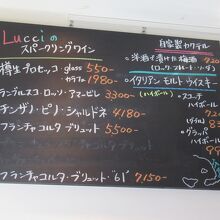 Lucciの
スパークリングワイン
樽生プロセッコ・glass 550-
カラフェ 1980-
ランブルスコ・ロッソ・アマービレ 3300-
チンザノ・ピノ・シャルドネ 4180-
フランチャコルタ ブリュット 5500-
フランチャコルタ・ブリュット・'61' 7,150-
自家製カクテル
洋酒で漬けた梅酒
(ロック・ストレート・ソーダ)
イタリアン モルト ウイスキー
(ハイボール)
スコッチ
ハイボール
グラッパ
ハイボール